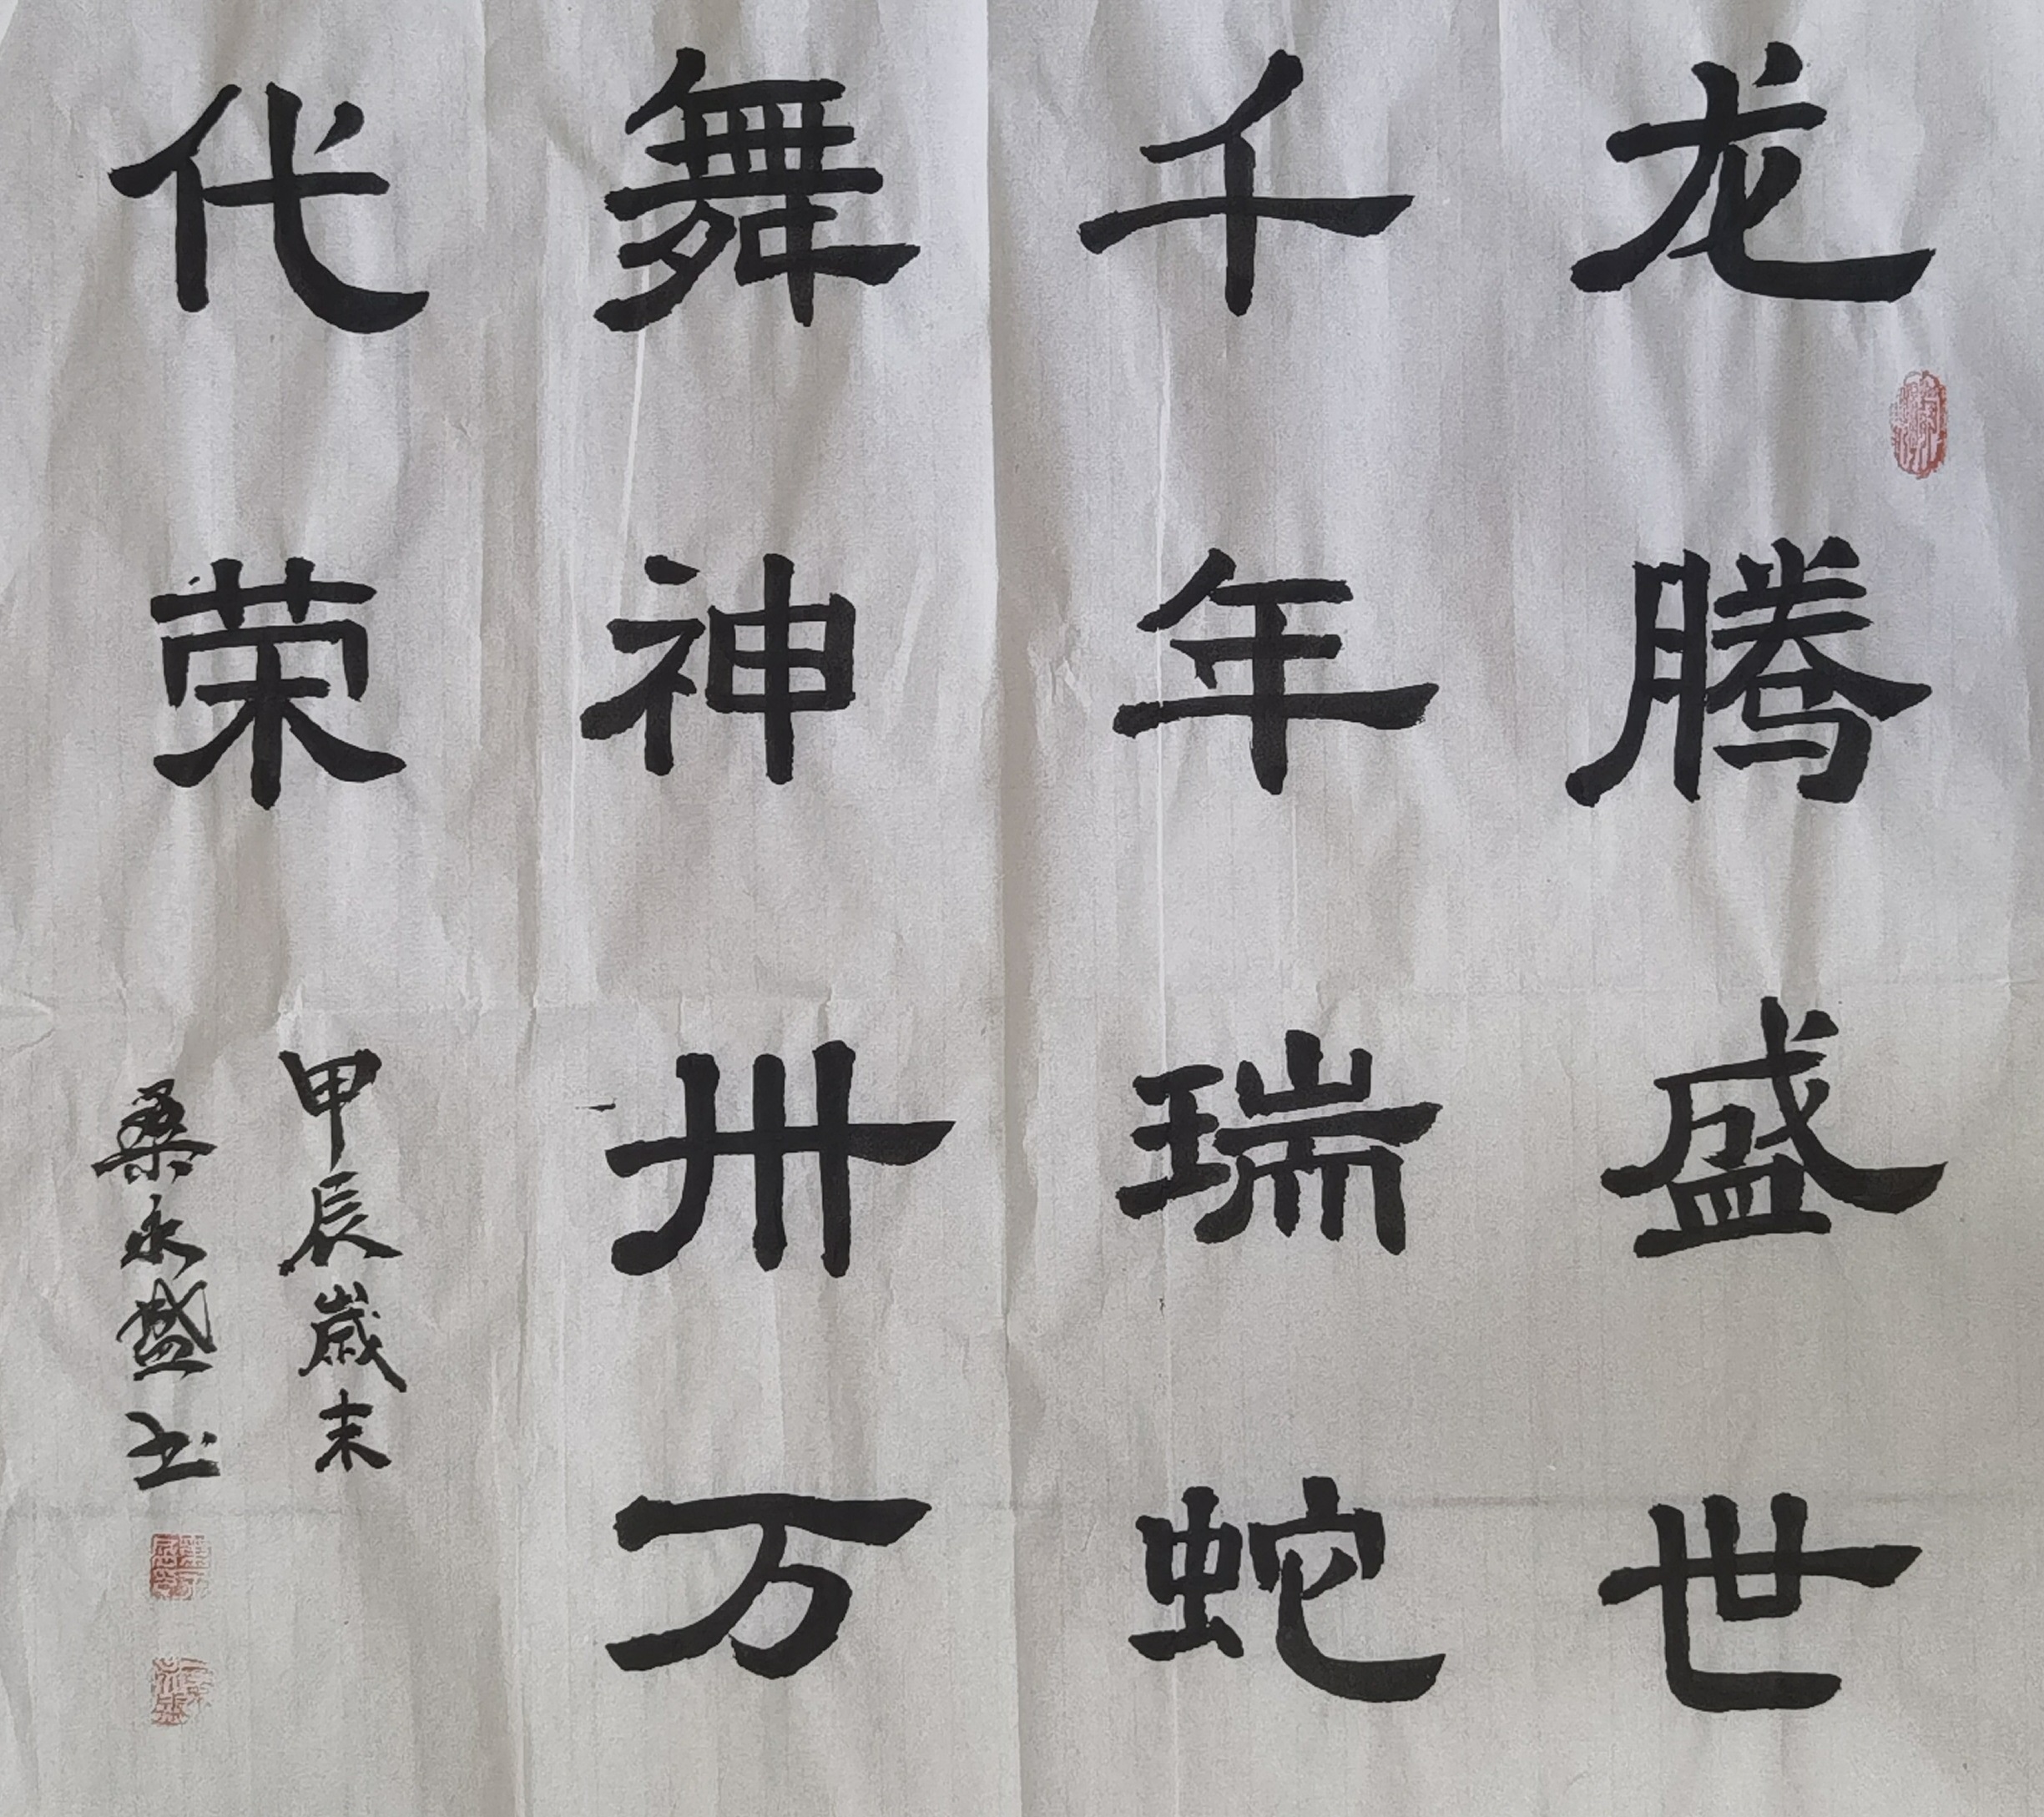 龙腾盛世
千年瑞蛇
舞神卅万
代荣
甲辰岁末
桑永盛书